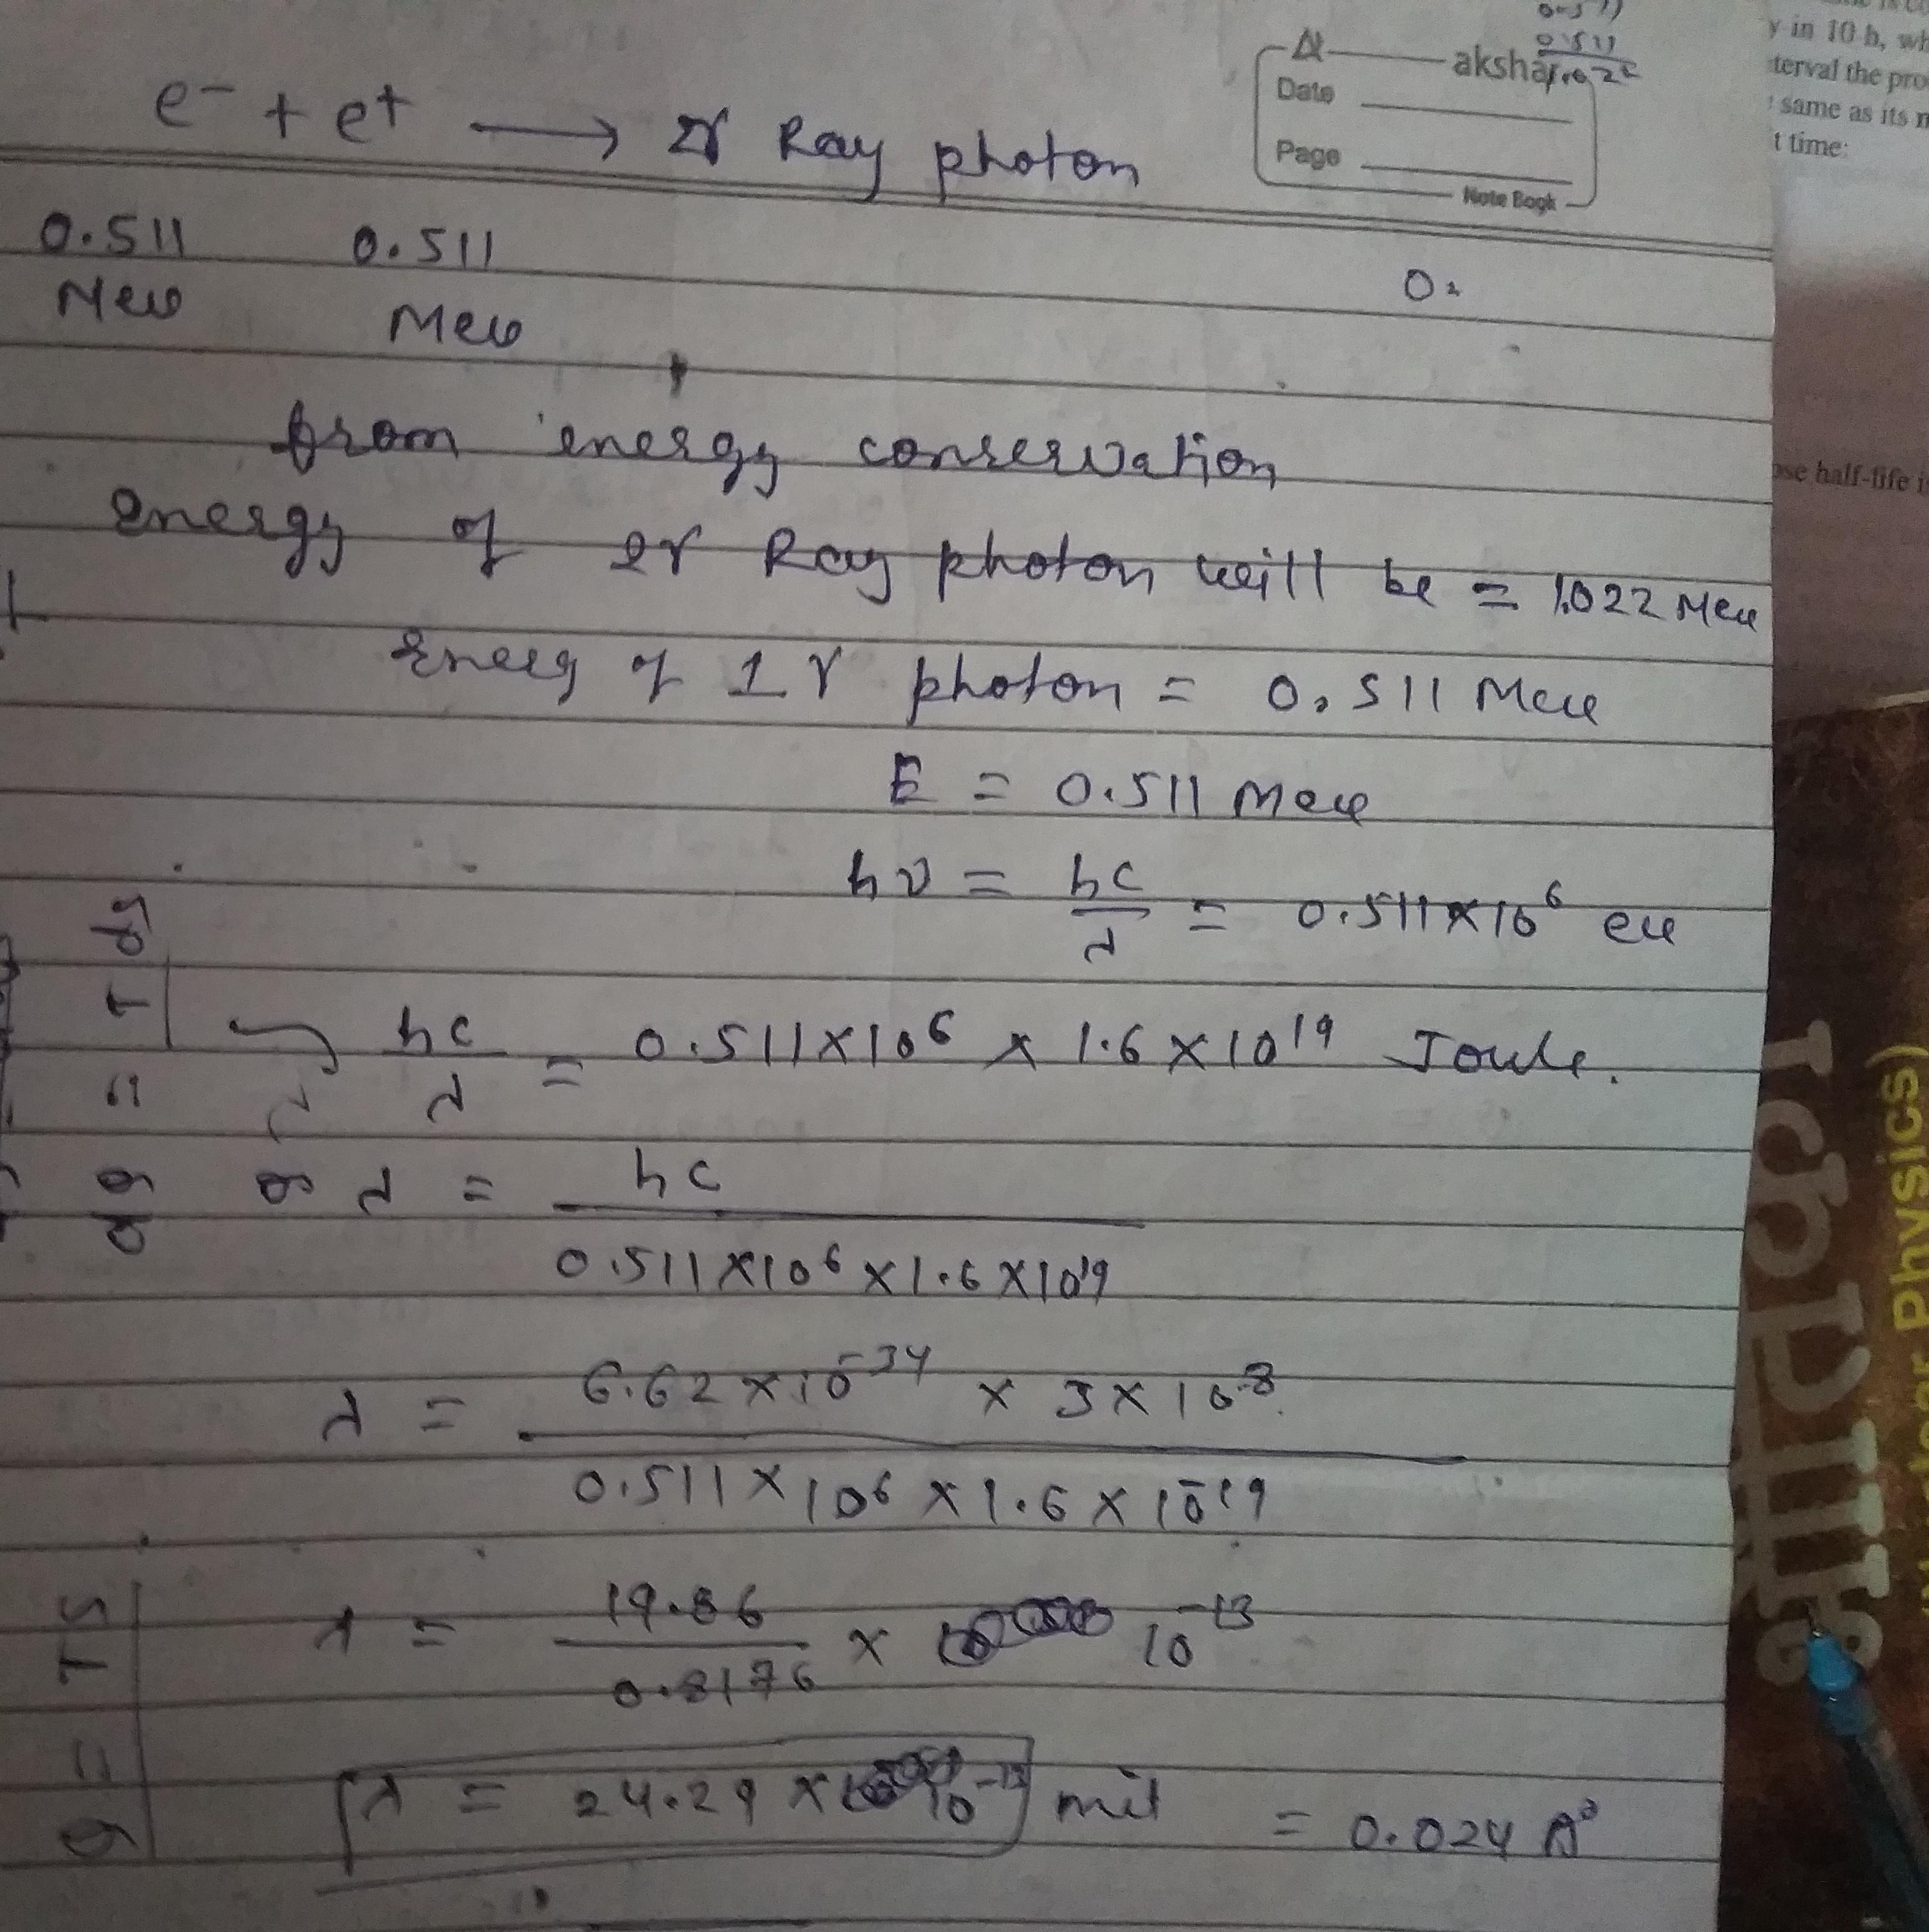 e⁻ + e⁺ → 2γ Ray photon
akshar
Date
Page
Note Book
y in 10 h, wh
terval the pro
same as its n
t time:
0.511 0.511
Mev Mev
from energy conservation
energy of 2γ Ray photon will be = 1.022 Mev
Energ of 1 γ photon = 0.511 Mev
ose half-life i
E = 0.511 Mev
hν = hc/λ = 0.511×10⁶ ev
hc/λ = 0.511×10⁶ × 1.6×10¹⁹ Joule.
or λ = hc / 0.511×10⁶×1.6×10¹⁹
λ = 6.62×10⁻³⁴ × 3×10⁸ / 0.511×10⁶×1.6×10⁻¹⁹
λ = 19.86/0.8176 × 10⁻¹³
λ = 24.29 × 10⁻¹³ mit = 0.024 A°
Physics)